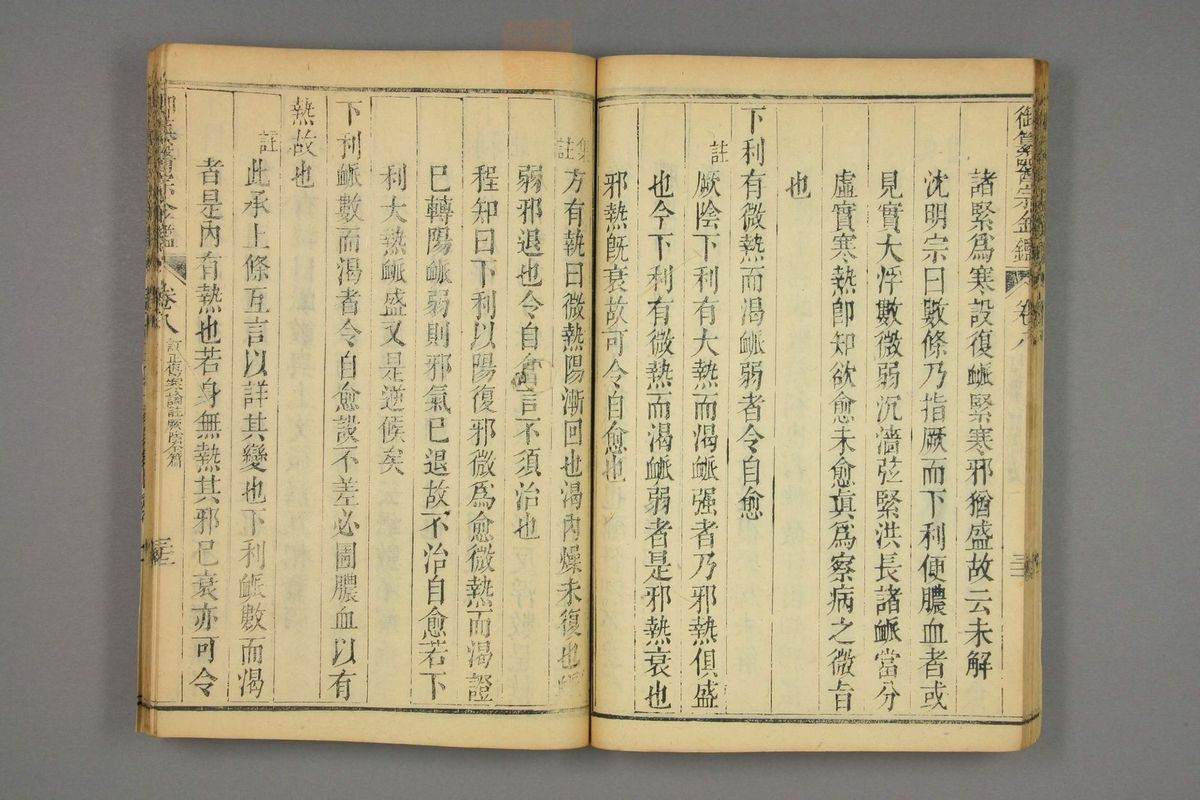 御纂醫宗金鑑 卷八 三十二
諸緊爲寒設復䘑緊寒邪猶盛故云未解
沈明宗曰數條乃指厥而下利便膿血者或
見實大浮數微弱沉濇弦緊洪長諸䘑當分
虛實寒熱卽知欲愈未愈眞爲察病之微旨
也
下利有微熱而渴䘑弱者令自愈
註 厥陰下利有大熱而渴䘑强者乃邪熱俱盛
也今下利有微熱而渴䘑弱者是邪熱衰也
邪熱旣衰故可令自愈也
集註 方有執曰微熱陽漸回也渴內燥未復也䘑
弱邪退也令自愈言不須治也
程知曰下利以陽復邪微爲愈微熱而渴證
已轉陽䘑弱則邪氣已退故不治自愈若下
利大熱䘑盛又是逆候矣
下利䘑數而渴者令自愈設不差必圊膿血以有
熱故也
註 此承上條互言以詳其變也下利䘑數而渴
者是內有熱也若身無熱其邪已衰亦可令
御纂醫宗金鑑 卷八 訂正傷寒論註厥陰全篇